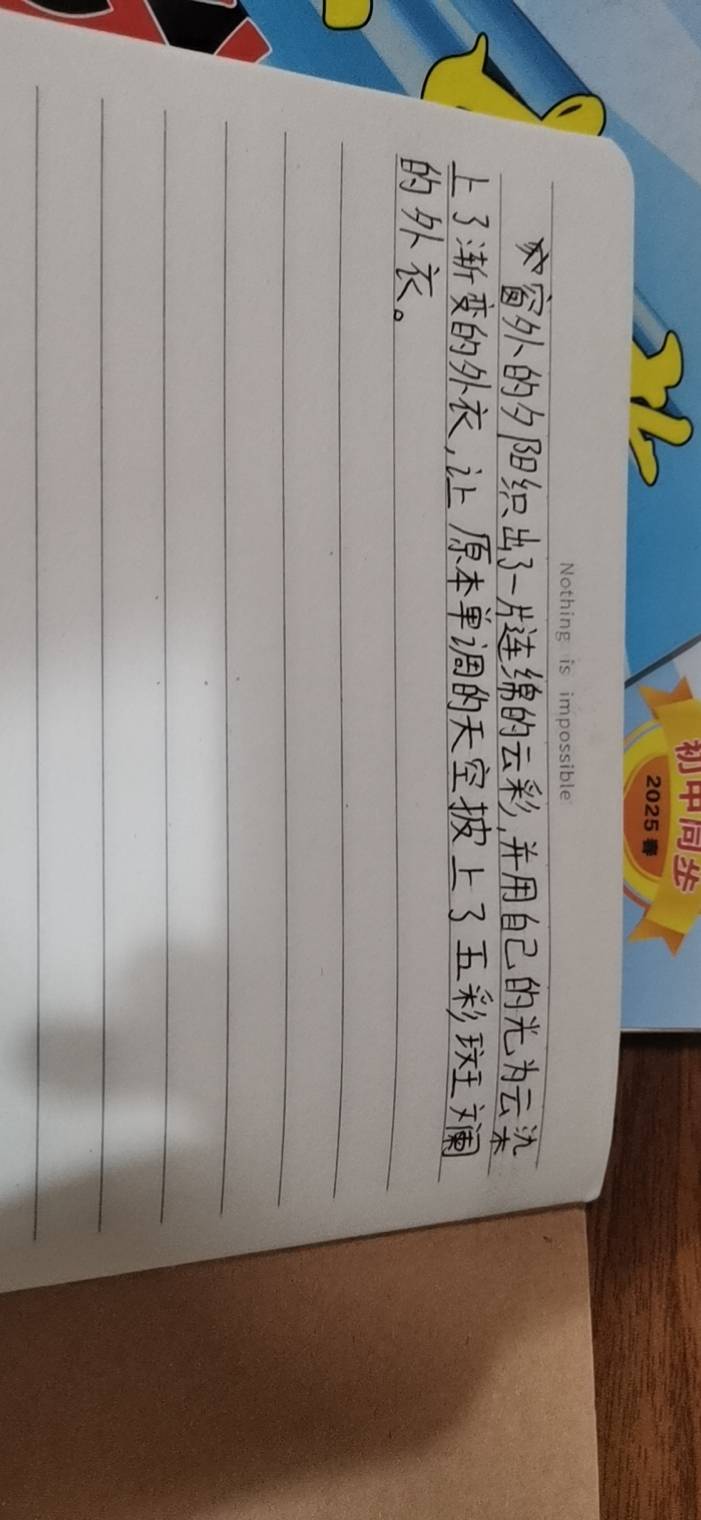 Nothing is impossible
窗外的夕阳织出了一片连绵的云彩,并用自己的光为云染
上了渐变的外衣,让原本单调的天空披上了五彩斑斓
的外衣。
初中同步
2025春